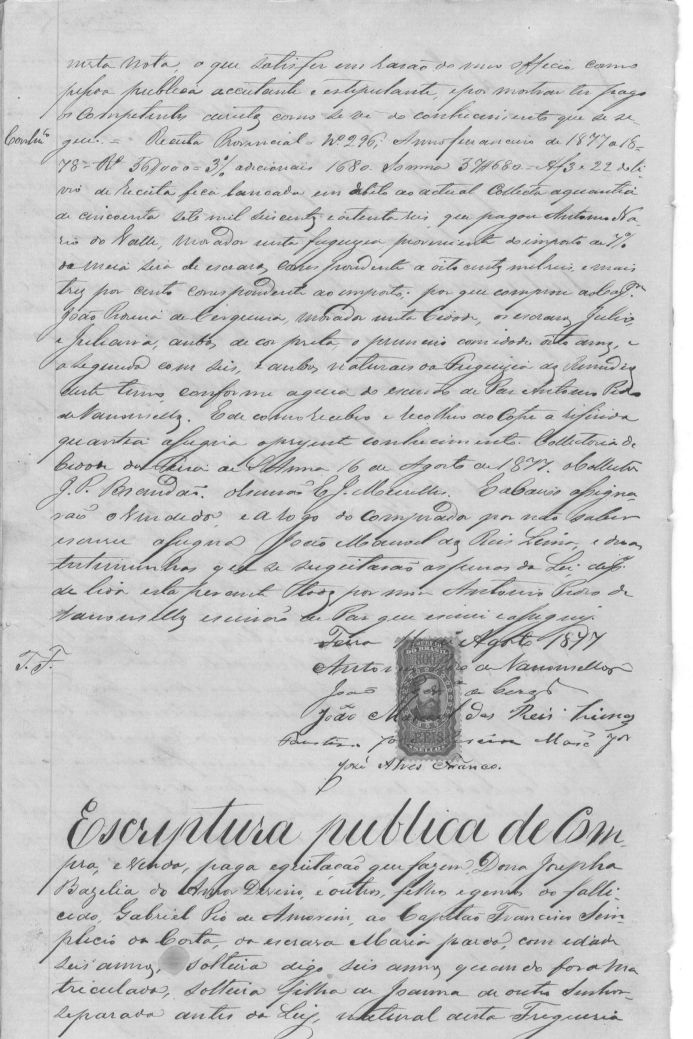 nesta Nota, o que satisfiz em rasão do meu officio como
pessoa publica aceitante e estipulante, e por mostrar ter pago
os competentes direitos como se vê do conhecimento que se se-
Conhecto
gue: = Receita Provincial = Nº 296: Anno financeiro de 1877 a 18-
78 = Rs 56#000 = 3% adicionais 1680. Somma 57#680 = Af 3 e 22 do li-
vro de receita fica lançada em debito ao actual Collector a quantia
de cincoenta sete mil seiscentos e oitenta reis, que pagou Antonio
do Valle, morador nesta freguezia proveniente do imposto de 7%
da meia siza de escravos correspondente a oito centos mil reis, e mais
tres por cento correspondente ao imposto: por que comprou ao
João de Cerqueira, morador nesta Cidade, os escravos Julio
e Juliana, ambos de cor preta o primeiro com idade oito annos, e
a segunda com seis, e ambos naturaes da Freguezia dos Remedios
deste termo, conforme a guia do escrivão de Paz Antonio Pedro
de Vasconsellos. E de como recebeu e recolheu ao Cofre a referida
quantia assigna o presente conhecimento. Collectoria da
Cidade da Feira de Sta Anna 16 de Agosto de 1877. O Collector
J. P. Brandão. O escrivão E. J. Meirelles. E abaixo assigna-
rão o Vendedor, e a rogo do comprador por não saber
escrever assigna João Manoel dos Reis Lima, e duas
testemunhas que se sugeitarão as penas da Lei, depois
de lida esta perante todos por mim Antonio Pedro de
Vasconsellos escrivão de Paz que escrevi e assignei.
Feira Agosto 1877
T. F.
Antonio de Vasconsellos
João de Cerqª
João Manoel dos Reis Lima
José Alves Franco.
DO BRASIL
REIS
Escriptura publica de Com-
pra, e Venda, paga e quitação que fazem, Dona Josepha
Bazelia do Amor Devino, e outros, filhos e genros do falle-
cido, Gabriel Pio de Amorim, ao Capitão Francisco Sim-
plicio da Costa, da escrava Maria parda, com idade
seis annos, solteira digo seis annos quando fora ma
triculada, solteira filha de Joanna de outro Senhor
separada antes da Lei, natural desta Freguezia